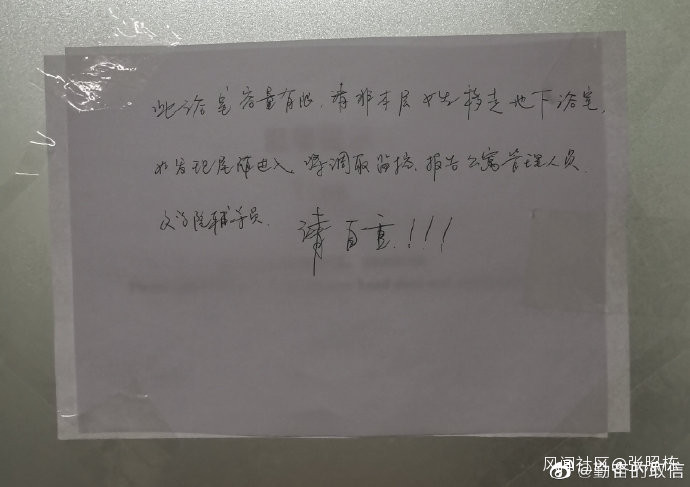 此浴室容量有限,请非本层女生移走地下浴室,
如发现尾随进入,将调取监控,报告公寓管理人员
及学院辅导员. 请自重!!!
风闻社区@张照栋
@勤奋的敢信